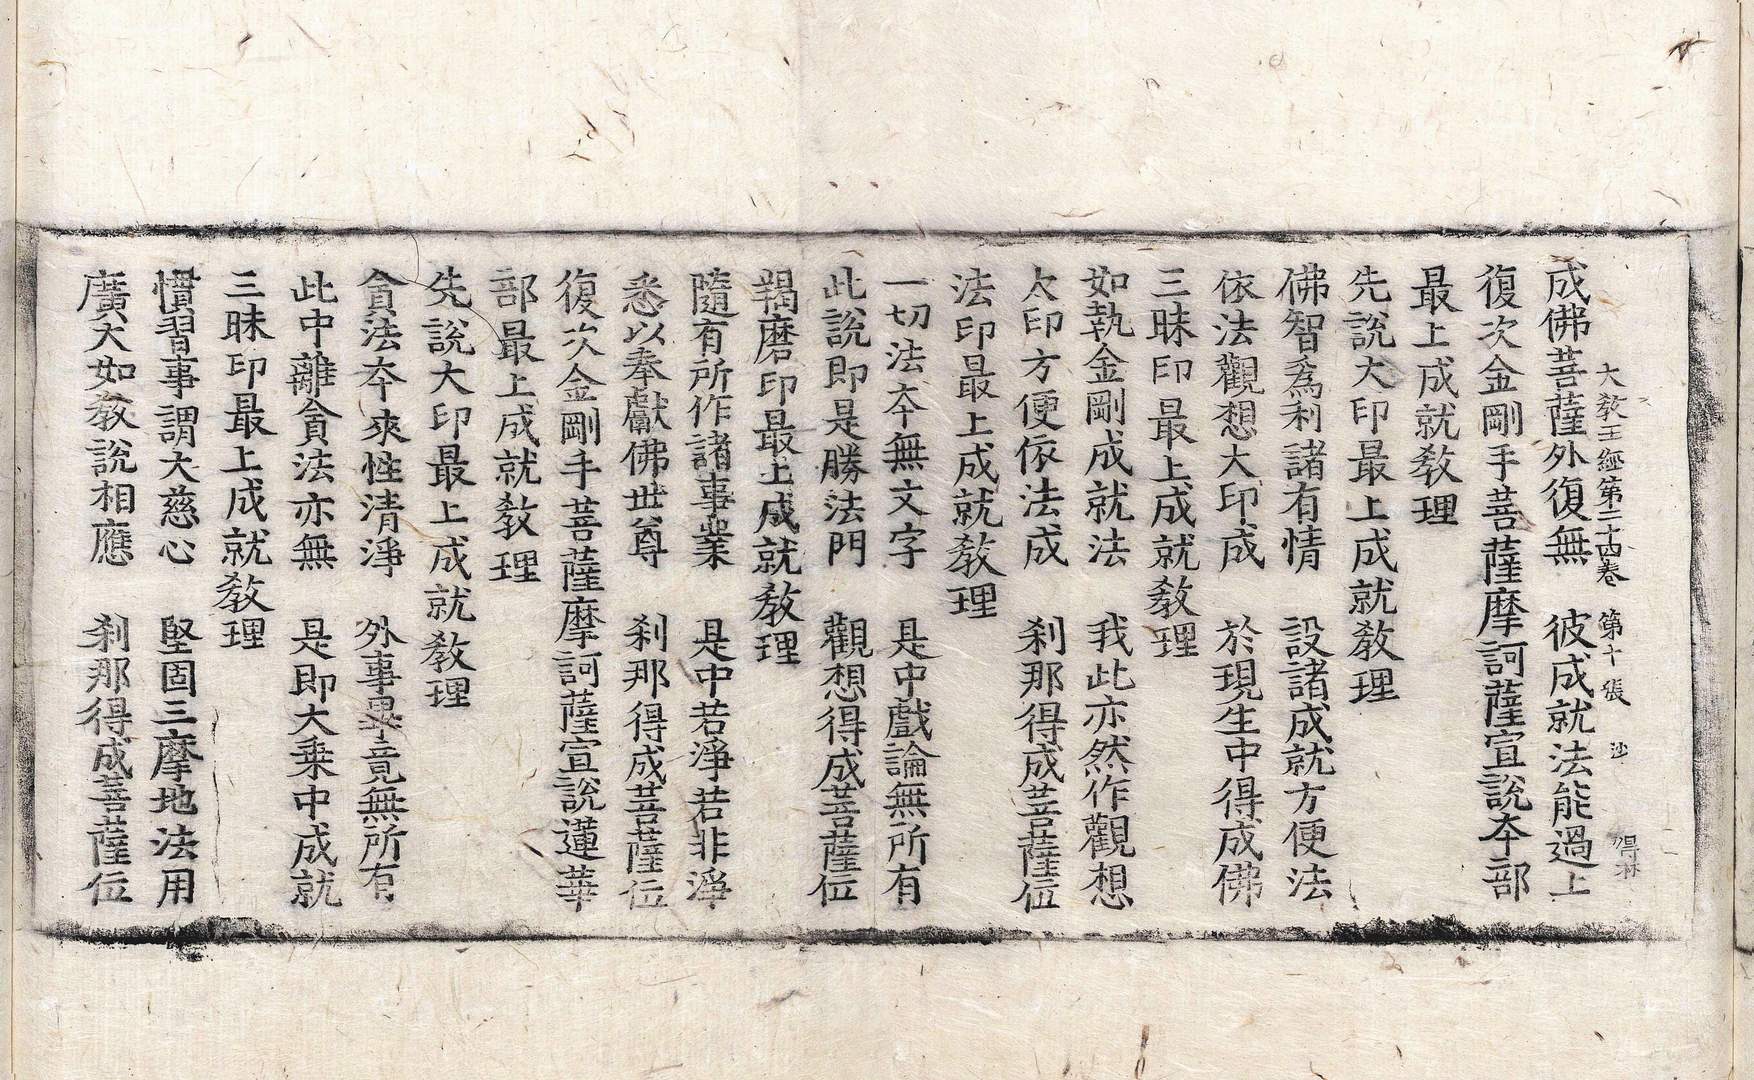 大教王經第二十四卷　第十張　沙
成佛菩薩外復無　彼成就法能過上
復次金剛手菩薩摩訶薩宣說夲部
最上成就敎理
先說大印最上成就敎理
佛智爲利諸有情　設諸成就方便法
依法觀想大印成　於現生中得成佛
三昧印最上成就敎理
如執金剛成就法　我此亦然作觀想
大印方便依法成　刹那得成菩薩位
法印最上成就敎理
一切法夲無文字　是中戲論無所有
此說即是勝法門　觀想得成菩薩位
羯磨印最上成就敎理
隨有所作諸事業　是中若淨若非淨
悉以奉獻佛世尊　刹那得成菩薩位
復次金剛手菩薩摩訶薩宣說蓮華
部最上成就敎理
先說大印最上成就敎理
貪法夲來性清淨　外事畢竟無所有
此中離貪法亦無　是即大乘中成就
三昧印最上成就敎理
慣習事謂大慈心　堅固三摩地法用
廣大如敎說相應　刹那得成菩薩位